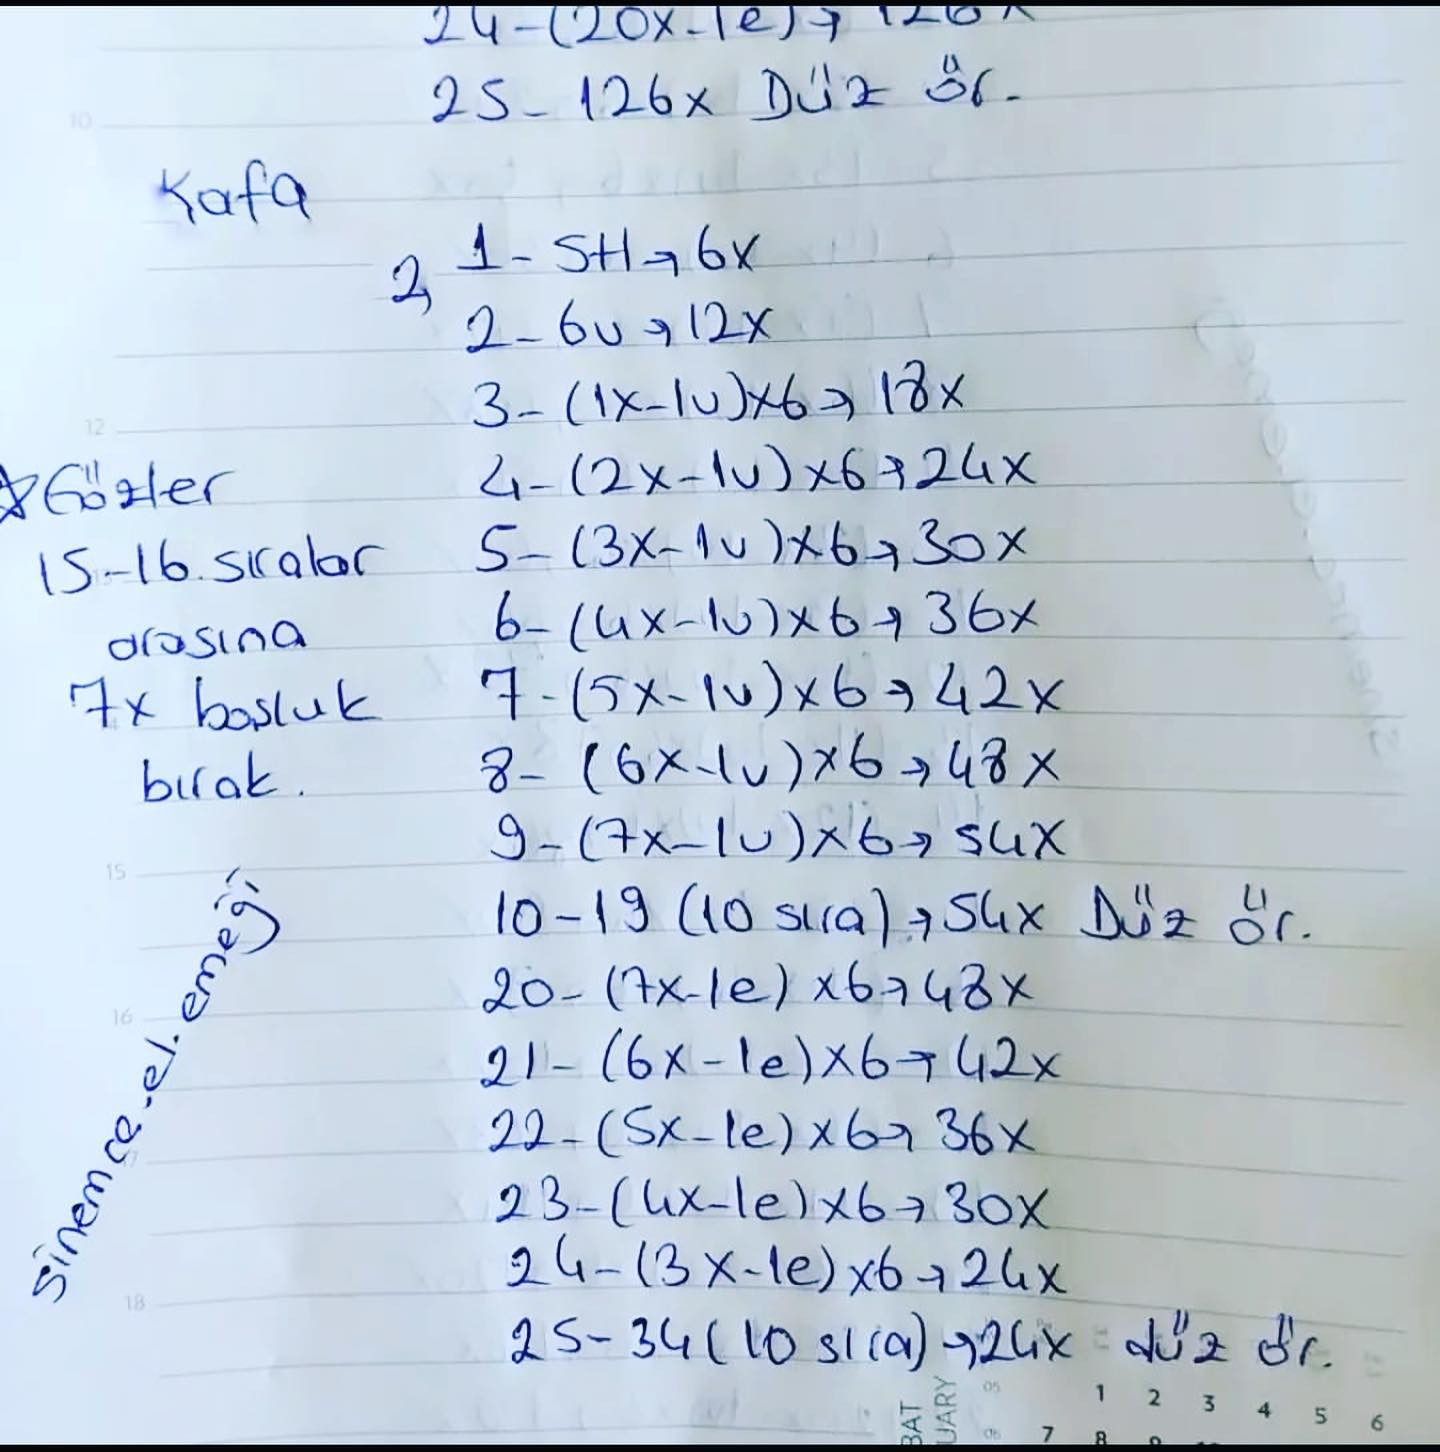 24-(20x-1e)→ 126x
25- 126x Düz ör.
Kafa
2, 1- SH→6x
2- 6v→12x
3- (1x-1v)x6→ 18x
4- (2x-1v)x6→24x
5- (3x-1v)x6→30x
6- (4x-1v)x6→36x
7-(5x-1v)x6→42x
8- (6x-1v)x6→48x
9-(7x-1v)x6→54x
10-19 (10 sıra)→54x Düz ör.
20- (7x-1e) x6→48x
21- (6x-1e)x6→42x
22-(5x-1e)x6→36x
23-(4x-1e)x6→30x
24-(3x-1e)x6→24x
25-34(10 sıra)→24x düz ör.
☆Gözler
15-16.sıralar
arasına
7x boşluk
bırak.
sinemce.el.emeği
10
12
15
16
17
18
BAT
UARY
05 1 2 3 4 5 6
06 7 8 9